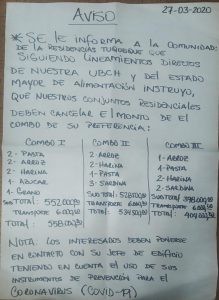 27-03-2020
AVISO
* SE LE INFORMA A LA COMUNIDAD:
DE LA RESIDENCIAS TURQUESA QUE
SIGUIENDO LINEAMIENTOS DIRECTOS
DE NUESTRA UBCH Y DEL ESTADO
MAYOR DE ALIMENTACIÓN INSTRUYO,
QUE NUESTROS CONJUNTOS RESIDENCIALES
DEBEN CANCELAR EL MONTO DE EL
COMBO DE SU PREFERENCIA:
COMBO I
2- PASTA
2- ARROZ
2- HARINA
1- AZUCAR
1- GRANO
SUB TOTAL: 552.000
TRANSPORTE 6.000
TOTAL: 558.000
COMBO II
2- ARROZ
2- HARINA
2- PASTA
1- SARDINA
SUB TOTAL
TRANSPORTE 6.000
TOTAL:
COMBO III
1- ARROZ
1- PASTA
2- HARINA
1- SARDINA
SUB TOTAL
TRANSPORTE
TOTAL:
NOTA: LOS INTERESADOS DEBEN PONERSE
EN CONTACTO CON SU JEFE DE EDIFICIO
TENIENDO EN CUENTA EL USO DE SUS
INSTRUMENTOS DE PREVENCIÓN PARA EL
CORONAVIRUS (COVID-19)